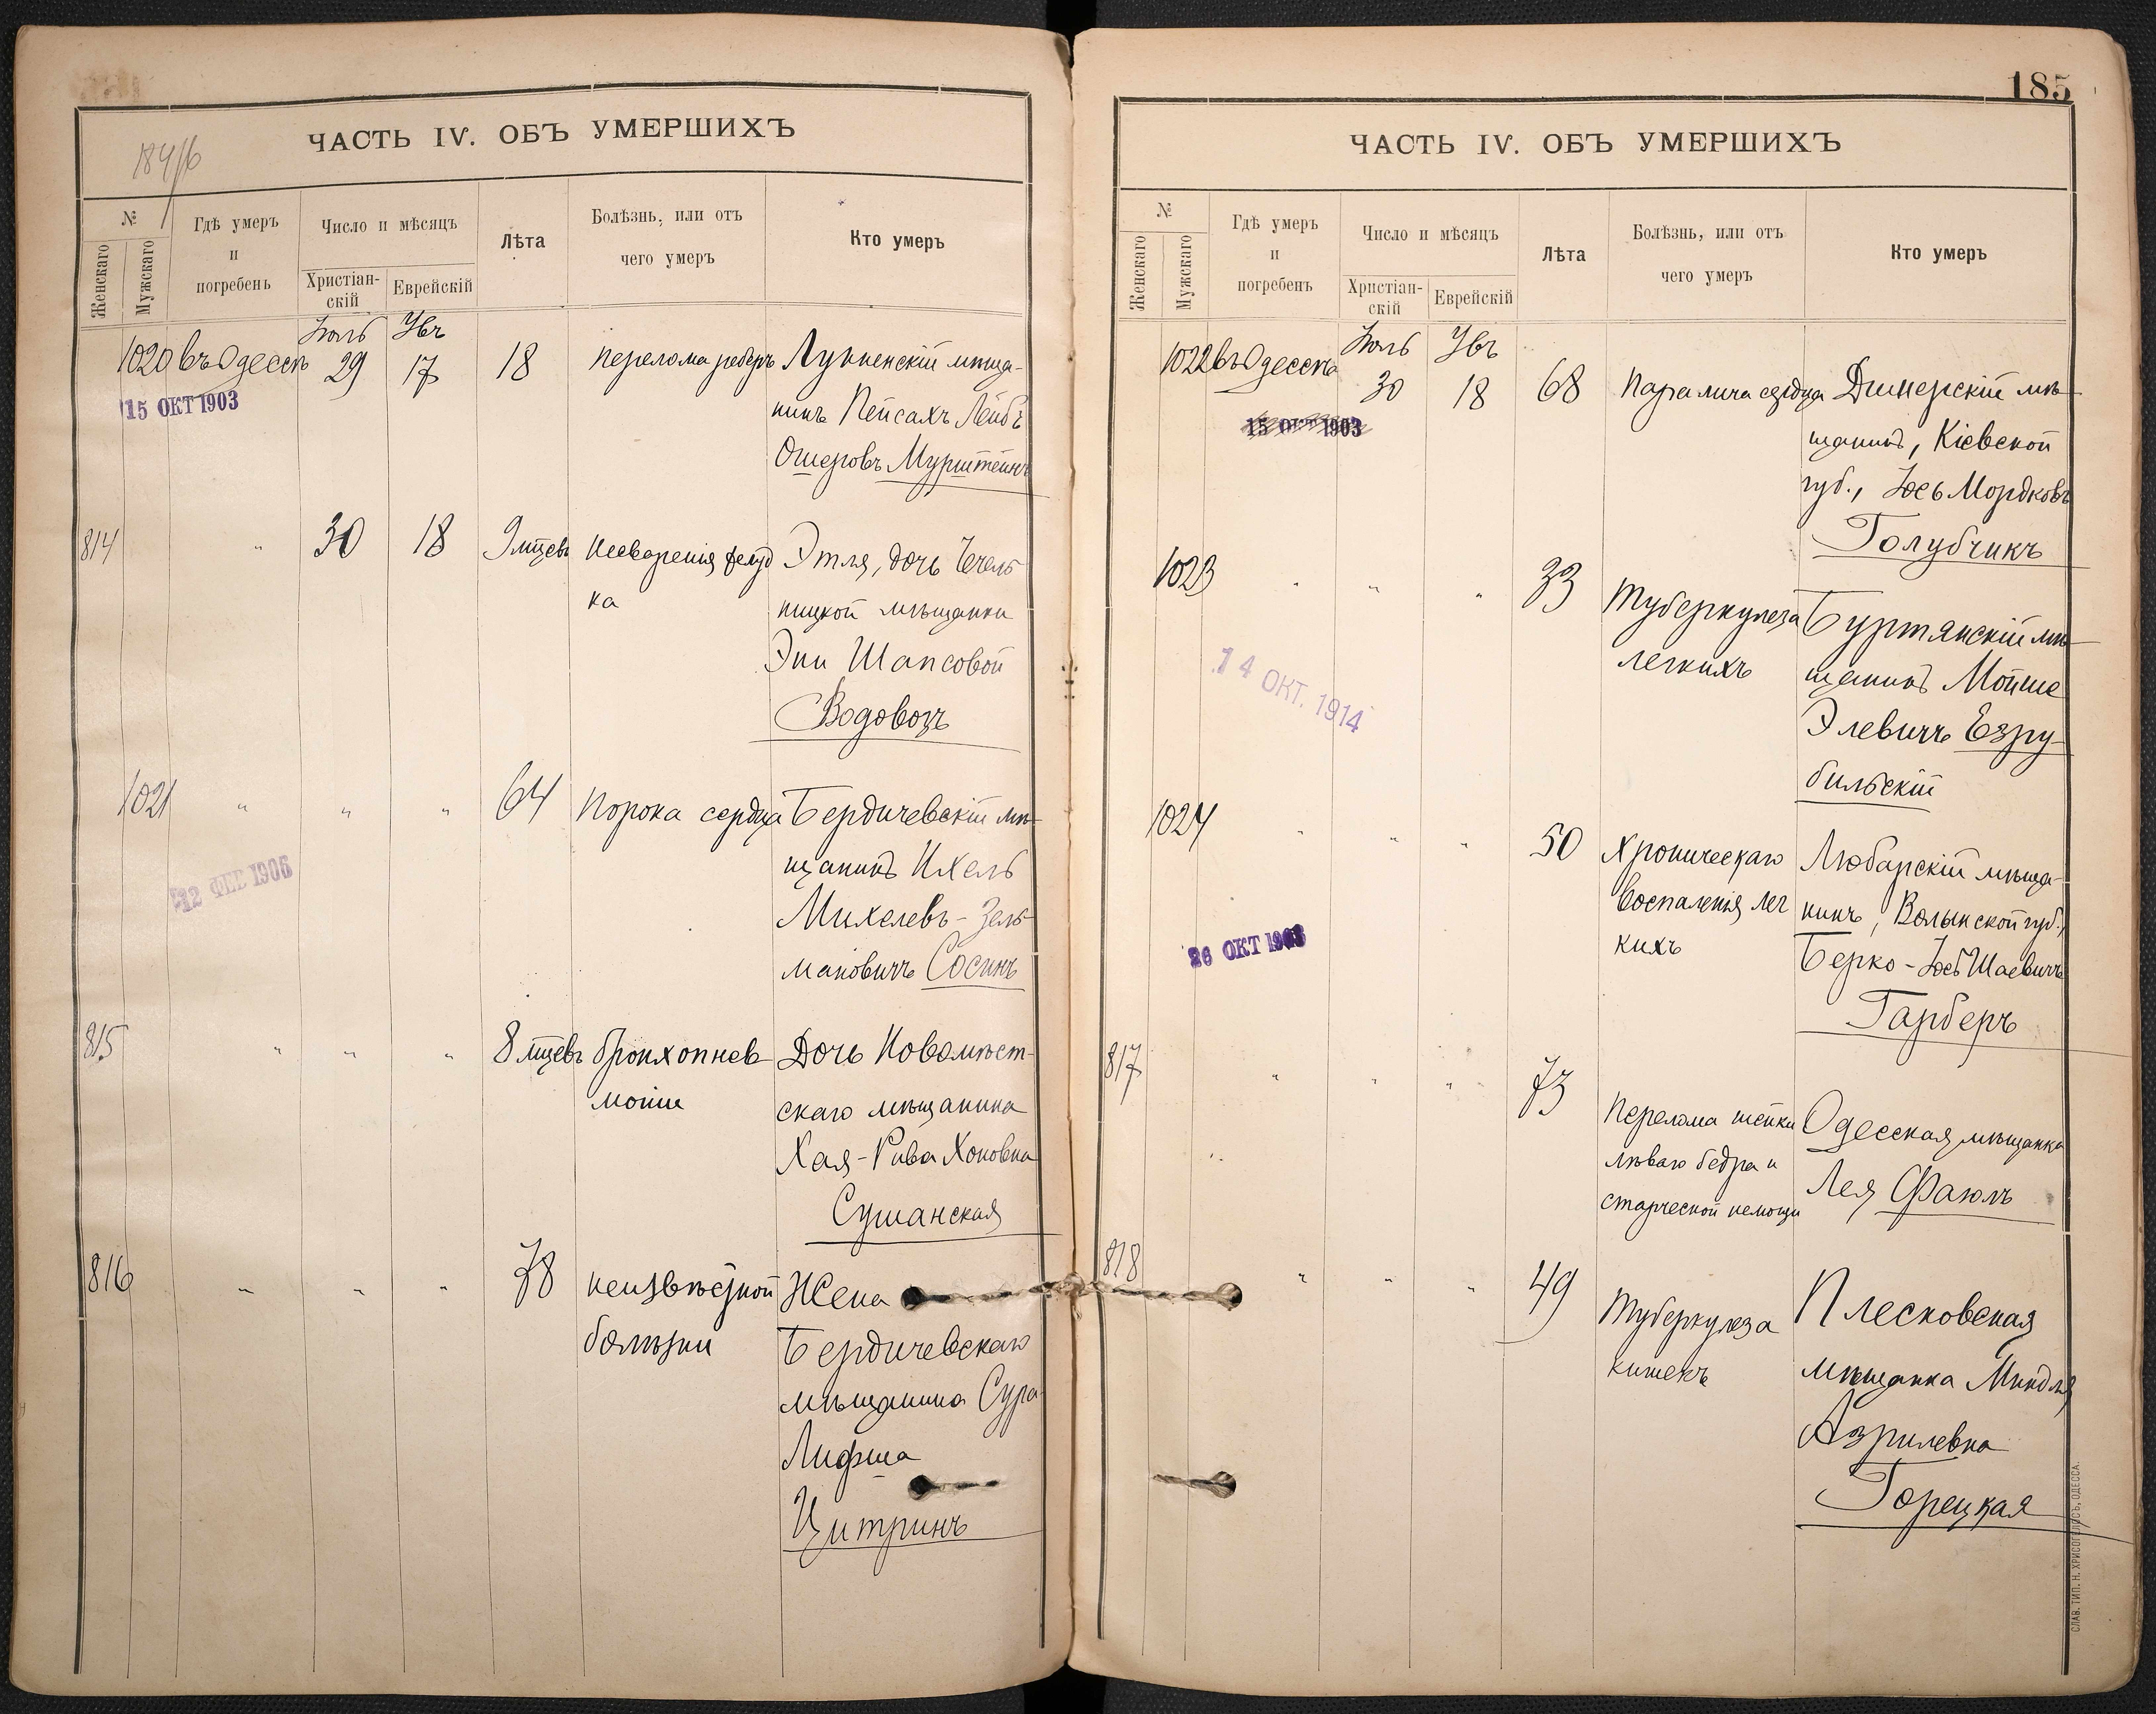 184/6
ЧАСТЬ IV. ОБЪ УМЕРШИХЪ
№
Женскаго
Мужскаго
Гдѣ умеръ
и
погребенъ
Число и мѣсяцъ
Христіан-
скій
Еврейскій
Лѣта
Болѣзнь, или отъ
чего умеръ
Кто умеръ
Іюль Убъ
1020 въ Одессѣ 29 17 18 перелома реберъ
мѣща-
нинъ Пейсахъ Лейбъ
Ошеровъ Мурштейнъ
15 ОКТ 1903
814 " 30 18 9 мцевъ несваренія желуд
ка
Этля, дочь Чечель
ницкой мѣщанки
Эни Шапсовой
Водовозъ
1021 " " " 64 порока сердца
Бердичевскій мѣ-
щанинъ Ихель
Михелевъ-Зель
мановичъ Сосинъ
12 ФЕВ 1906
815 " " " 8 мцевъ бронхопнев
моніи
Дочь Новомѣст-
скаго мѣщанина
Хая-Рива Хоновна
Сушанская
816 " " " 78 неизвѣстной
болѣзни
Жена
Бердичевскаго
мѣщанина Сура
Лифша
Цитринъ
185
ЧАСТЬ IV. ОБЪ УМЕРШИХЪ
№
Женскаго
Мужскаго
Гдѣ умеръ
и
погребенъ
Число и мѣсяцъ
Христіан-
скій
Еврейскій
Лѣта
Болѣзнь, или отъ
чего умеръ
Кто умеръ
Іюль Убъ
1022 въ Одессѣ 30 18 68 паралича сердца
Дымерскій мѣ-
щанинъ, Кіевской
губ., Іось Мордковъ
Голубчикъ
15 ОКТ 1903
1023 " " " 33 туберкулеза
легкихъ
Буртянскій мѣ-
щанинъ Мойше
Элевичъ Езру-
бильскій
14 ОКТ. 1914
1024 " " " 50 хроническаго
воспаленія лег
кихъ
Любарскій мѣща-
нинъ, Волынской губ.,
Берко-Іось Шаевичъ
Гарберъ
26 ОКТ 1903
817 " " " 73 перелома шейки
лѣваго бедра и
старческой немощи
Одесская мѣщанка
Лея Фаюлъ
818 " " " 49 туберкулеза
кишекъ
Плесковская
мѣщанка Миндля
Азрилевна
Горецкая
СЛАВ. ТИП. Н. ХРИСОГЕЛОСЪ, ОДЕССА.